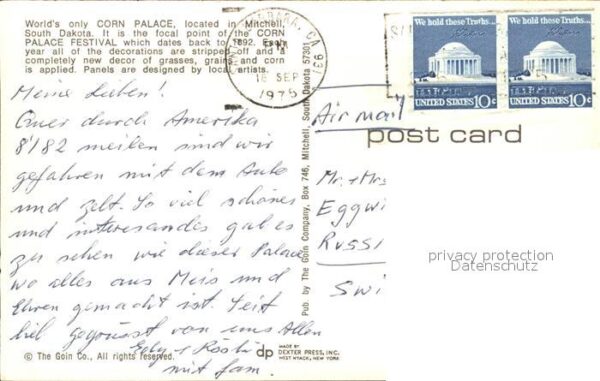 World's only CORN PALACE, located in Mitchell,
South Dakota. It is the focal point of the CORN
PALACE FESTIVAL which dates back to 1892. Each
year all of the decorations are stripped off and a
completely new decor of grasses, grains and corn
is applied. Panels are designed by local artists.
Meine Lieben!
Quer durch Amerika
8'182 meilen sind wir
gefahren mit dem Auto
und zelt. So viel schönes
und interesandes gab es
zu sehen wie dieser Palace
wo alles aus Meis und
Ehren gemacht ist. Seit
viel gegrüsst von uns Allen
+ Rösli
mit fam.
© The Goin Co., All rights reserved.
Pub by The Goin Company, Box 746, Mitchell, South Dakota 57301
dp MADE BY
DEXTER PRESS, INC.
WEST NYACK, NEW YORK
CA
931
16 SEP
1975
We hold these Truths...
UNITED STATES 10c
We hold these Truths...
UNITED STATES 10c
Air mail
post card
Mr. + Mrs
Eggwi
Russi
Swi
privacy protection
Datenschutz